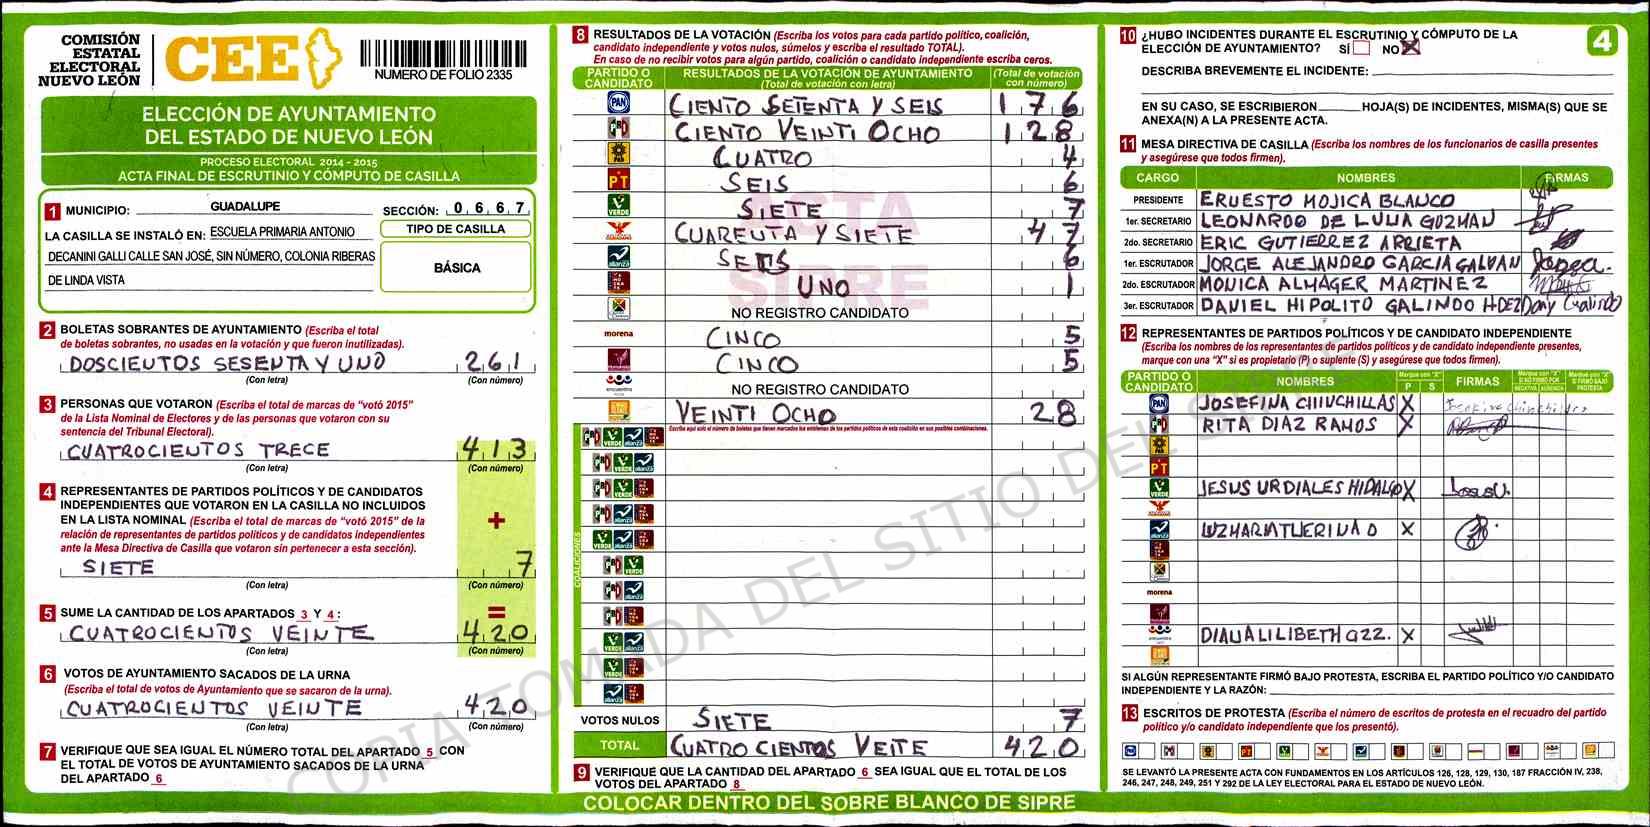 COMISIÓN
ESTATAL
ELECTORAL
NUEVO LEÓN
CEE
NUMERO DE FOLIO 2335
ELECCIÓN DE AYUNTAMIENTO
DEL ESTADO DE NUEVO LEÓN
PROCESO ELECTORAL 2014 - 2015
ACTA FINAL DE ESCRUTINIO Y CÓMPUTO DE CASILLA
1 MUNICIPIO: GUADALUPE SECCIÓN: 0 6 6 7
LA CASILLA SE INSTALÓ EN: ESCUELA PRIMARIA ANTONIO
DECANINI GALLI CALLE SAN JOSÉ, SIN NÚMERO, COLONIA RIBERAS
DE LINDA VISTA
TIPO DE CASILLA
BÁSICA
2 BOLETAS SOBRANTES DE AYUNTAMIENTO (Escriba el total
de boletas sobrantes, no usadas en la votación y que fueron inutilizadas).
DOSCIENTOS SESENTA Y UNO 261
(Con letra) (Con número)
3 PERSONAS QUE VOTARON (Escriba el total de marcas de "votó 2015"
de la Lista Nominal de Electores y de las personas que votaron con su
sentencia del Tribunal Electoral).
CUATROCIENTOS TRECE 413
(Con letra) (Con número)
4 REPRESENTANTES DE PARTIDOS POLÍTICOS Y DE CANDIDATOS
INDEPENDIENTES QUE VOTARON EN LA CASILLA NO INCLUIDOS
EN LA LISTA NOMINAL (Escriba el total de marcas de "votó 2015" de la
relación de representantes de partidos políticos y de candidatos independientes
ante la Mesa Directiva de Casilla que votaron sin pertenecer a esta sección).
+
SIETE 7
(Con letra) (Con número)
5 SUME LA CANTIDAD DE LOS APARTADOS 3 Y 4 : =
CUATROCIENTOS VEINTE 420
(Con letra) (Con número)
6 VOTOS DE AYUNTAMIENTO SACADOS DE LA URNA
(Escriba el total de votos de Ayuntamiento que se sacaron de la urna).
CUATROCIENTOS VEINTE 420
(Con letra) (Con número)
7 VERIFIQUE QUE SEA IGUAL EL NÚMERO TOTAL DEL APARTADO 5 CON
EL TOTAL DE VOTOS DE AYUNTAMIENTO SACADOS DE LA URNA
DEL APARTADO 6
8 RESULTADOS DE LA VOTACIÓN (Escriba los votos para cada partido político, coalición,
candidato independiente y votos nulos, súmelos y escriba el resultado TOTAL).
En caso de no recibir votos para algún partido, coalición o candidato independiente escriba ceros.
PARTIDO O CANDIDATO RESULTADOS DE LA VOTACIÓN DE AYUNTAMIENTO (Total de votación con letra) (Total de votación con número)
PAN CIENTO SETENTA Y SEIS 176
PRD CIENTO VEINTI OCHO 128
CUATRO 4
PT SEIS 6
VERDE SIETE 7
CUARENTA Y SIETE 47
alianza SEIS 6
UNO 1
NO REGISTRO CANDIDATO
morena CINCO 5
CINCO 5
NO REGISTRO CANDIDATO
VEINTI OCHO 28
Escriba aquí solo el número de boletas que tienen marcados los emblemas de los partidos políticos de esta coalición en sus posibles combinaciones.
COALICIONES
VOTOS NULOS SIETE 7
TOTAL CUATRO CIENTOS VEITE 420
9 VERIFIQUE QUE LA CANTIDAD DEL APARTADO 6 SEA IGUAL QUE EL TOTAL DE LOS
VOTOS DEL APARTADO 8
COLOCAR DENTRO DEL SOBRE BLANCO DE SIPRE
ACTA
SIPRE
COPIA TOMADA DEL SITIO DEL SIPRE
4
10 ¿HUBO INCIDENTES DURANTE EL ESCRUTINIO Y CÓMPUTO DE LA
ELECCIÓN DE AYUNTAMIENTO? SÍ NO X
DESCRIBA BREVEMENTE EL INCIDENTE:
EN SU CASO, SE ESCRIBIERON HOJA(S) DE INCIDENTES, MISMA(S) QUE SE
ANEXA(N) A LA PRESENTE ACTA.
11 MESA DIRECTIVA DE CASILLA (Escriba los nombres de los funcionarios de casilla presentes
y asegúrese que todos firmen).
CARGO NOMBRES FIRMAS
PRESIDENTE ERUESTO MOJICA BLANCO
1er. SECRETARIO LEONARDO DE LUUA GUZMAN
2do. SECRETARIO ERIC GUTIERREZ ARRIETA
1er. ESCRUTADOR JORGE ALEJANDRO GARCIA GALVAN
2do. ESCRUTADOR MONICA ALMAGER MARTINEZ
3er. ESCRUTADOR DANIEL HIPOLITO GALINDO HDEZ Dany Galindo
12 REPRESENTANTES DE PARTIDOS POLÍTICOS Y DE CANDIDATO INDEPENDIENTE
(Escriba los nombres de los representantes de partidos políticos y de candidato independiente presentes,
marque con una "X" si es propietario (P) o suplente (S) y asegúrese que todos firmen).
PARTIDO O CANDIDATO NOMBRES Marque con "X" P S FIRMAS
PAN JOSEFINA CHINCHILLAS X Josefina Chinchillas
PRD RITA DIAZ RAMOS X
PT
VERDE JESUS URDIALES HIDALGO X
alianza X
morena
DIANA LILIBETH GZZ. X
SI ALGÚN REPRESENTANTE FIRMÓ BAJO PROTESTA, ESCRIBA EL PARTIDO POLÍTICO Y/O CANDIDATO
INDEPENDIENTE Y LA RAZÓN:
13 ESCRITOS DE PROTESTA (Escriba el número de escritos de protesta en el recuadro del partido
político y/o candidato independiente que los presentó).
SE LEVANTÓ LA PRESENTE ACTA CON FUNDAMENTOS EN LOS ARTÍCULOS 126, 128, 129, 130, 187 FRACCIÓN IV, 238,
246, 247, 248, 249, 251 Y 292 DE LA LEY ELECTORAL PARA EL ESTADO DE NUEVO LEÓN.